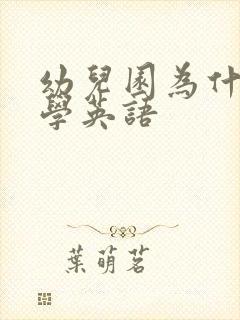 幼兒園為什
學英語
葉萌茗